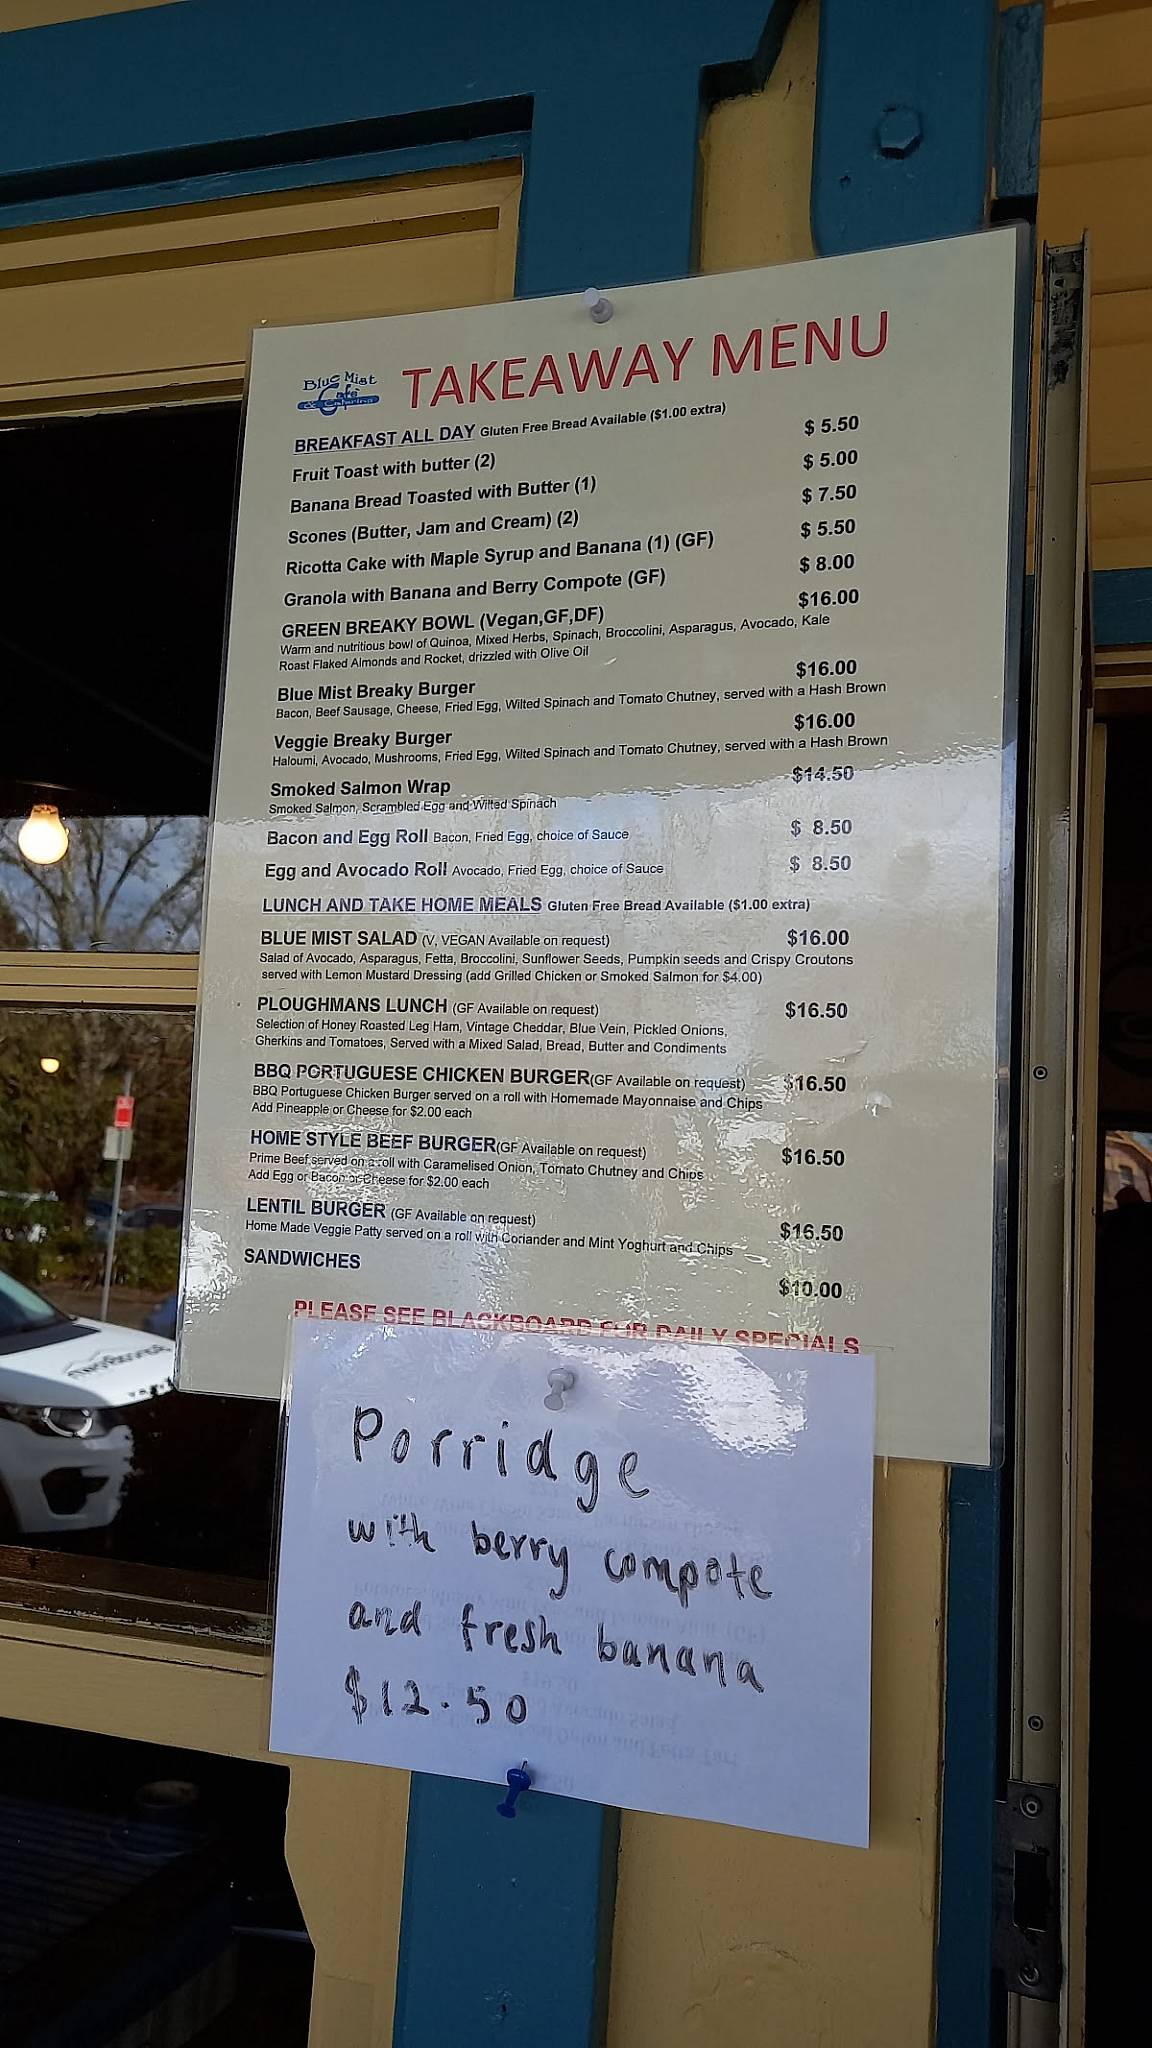 Blue Mist
Café
& Catering
TAKEAWAY MENU
BREAKFAST ALL DAY Gluten Free Bread Available ($1.00 extra)
Fruit Toast with butter (2) $ 5.50
Banana Bread Toasted with Butter (1) $ 5.00
Scones (Butter, Jam and Cream) (2) $ 7.50
Ricotta Cake with Maple Syrup and Banana (1) (GF) $ 5.50
Granola with Banana and Berry Compote (GF) $ 8.00
GREEN BREAKY BOWL (Vegan,GF,DF) $16.00
Warm and nutritious bowl of Quinoa, Mixed Herbs, Spinach, Broccolini, Asparagus, Avocado, Kale
Roast Flaked Almonds and Rocket, drizzled with Olive Oil
Blue Mist Breaky Burger $16.00
Bacon, Beef Sausage, Cheese, Fried Egg, Wilted Spinach and Tomato Chutney, served with a Hash Brown
Veggie Breaky Burger $16.00
Haloumi, Avocado, Mushrooms, Fried Egg, Wilted Spinach and Tomato Chutney, served with a Hash Brown
Smoked Salmon Wrap $14.50
Smoked Salmon, Scrambled Egg and Wilted Spinach
Bacon and Egg Roll Bacon, Fried Egg, choice of Sauce $ 8.50
Egg and Avocado Roll Avocado, Fried Egg, choice of Sauce $ 8.50
LUNCH AND TAKE HOME MEALS Gluten Free Bread Available ($1.00 extra)
BLUE MIST SALAD (V, VEGAN Available on request) $16.00
Salad of Avocado, Asparagus, Fetta, Broccolini, Sunflower Seeds, Pumpkin seeds and Crispy Croutons
served with Lemon Mustard Dressing (add Grilled Chicken or Smoked Salmon for $4.00)
PLOUGHMANS LUNCH (GF Available on request) $16.50
Selection of Honey Roasted Leg Ham, Vintage Cheddar, Blue Vein, Pickled Onions,
Gherkins and Tomatoes, Served with a Mixed Salad, Bread, Butter and Condiments
BBQ PORTUGUESE CHICKEN BURGER(GF Available on request) $16.50
BBQ Portuguese Chicken Burger served on a roll with Homemade Mayonnaise and Chips
Add Pineapple or Cheese for $2.00 each
HOME STYLE BEEF BURGER(GF Available on request) $16.50
Prime Beef served on a roll with Caramelised Onion, Tomato Chutney and Chips
Add Egg or Bacon or Cheese for $2.00 each
LENTIL BURGER (GF Available on request) $16.50
Home Made Veggie Patty served on a roll with Coriander and Mint Yoghurt and Chips
SANDWICHES $10.00
PLEASE SEE BLACKBOARD FOR DAILY SPECIALS
Porridge
with berry compote
and fresh banana
$12.50